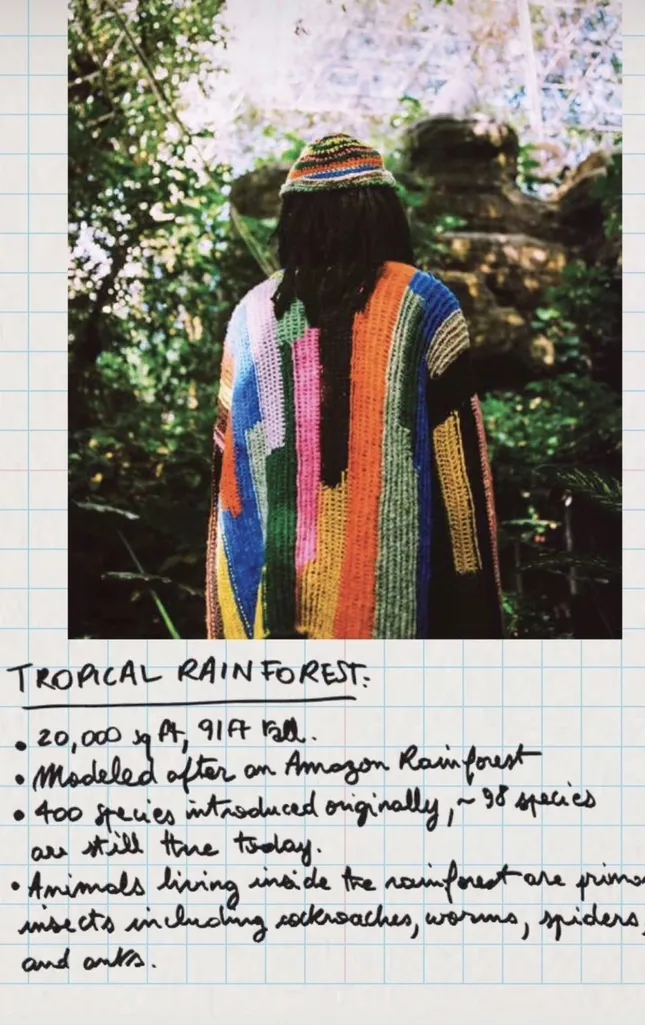 TROPICAL RAINFOREST:
• 20,000 sq ft, 91ft tall.
• Modeled after an Amazon Rainforest
• 400 species introduced originally, ~ 98 species
are still there today.
• Animals living inside the rainforest are prima
insects including cockroaches, worms, spiders,
and ants.